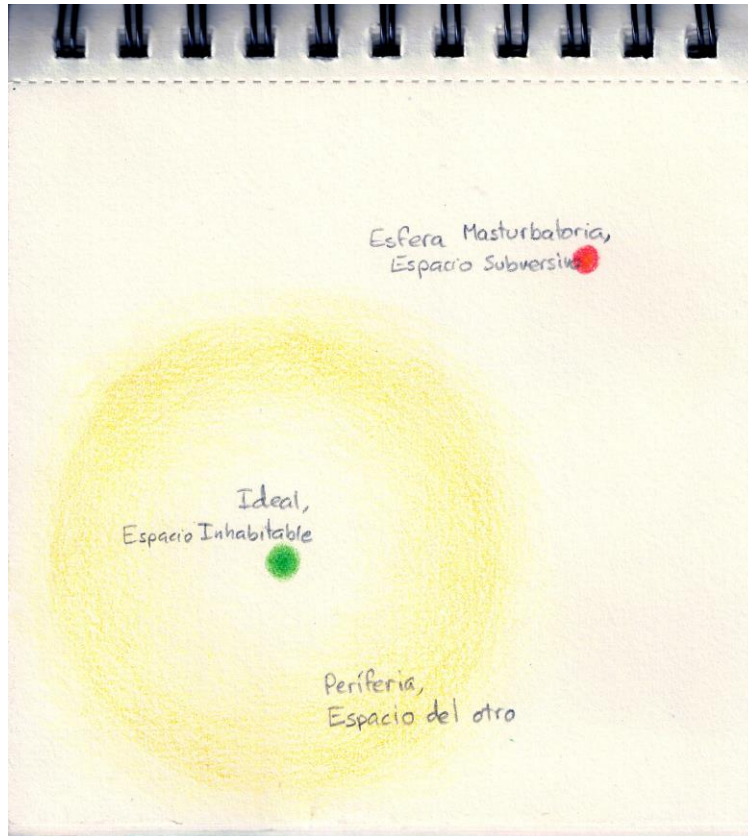 Esfera Masturbatoria,
Espacio Subversivo
Ideal,
Espacio Inhabitable
Períferia,
Espacio del otro